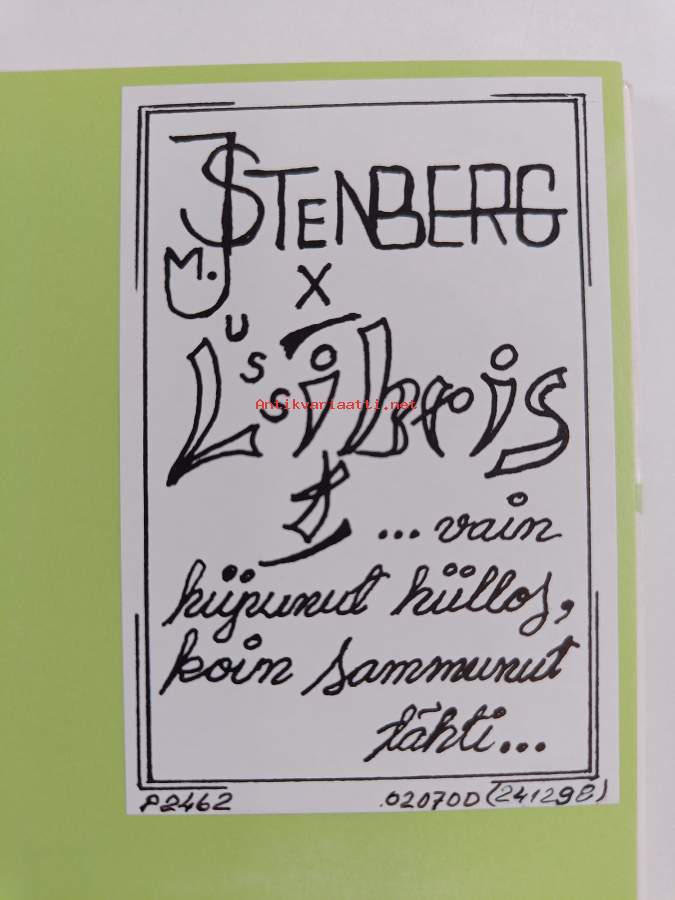 J STENBERG
M.
X
us
Libris
Antikvariaatti.net
... vain
hiipunut hiillos,
koin sammunut
tähti...
P2462 .02070D (241298)